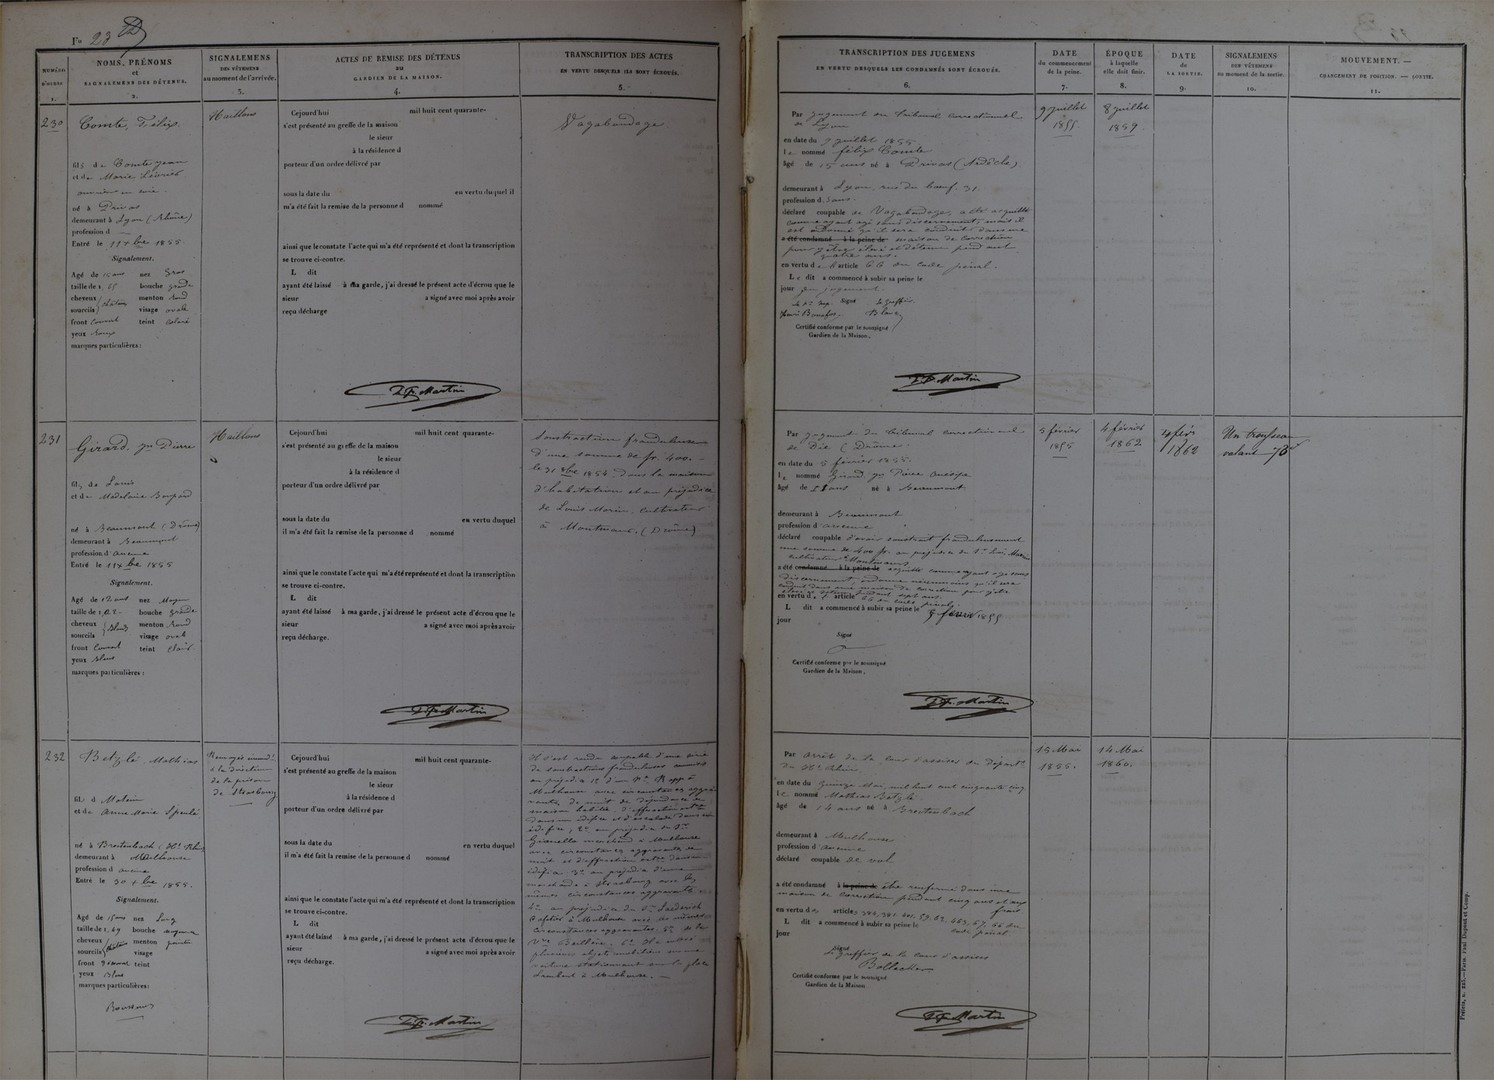 Fo 23
NUMÉRO
D'ORDRE
1.
NOMS, PRÉNOMS
et
SIGNALEMENS DES DÉTENUS.
2.
SIGNALEMENS
DES VÊTEMENS
au moment de l'arrivée.
3.
ACTES DE REMISE DES DÉTENUS
au
GARDIEN DE LA MAISON.
4.
TRANSCRIPTION DES ACTES
EN VERTU DESQUELS ILS SONT ÉCROUÉS.
5.
TRANSCRIPTION DES JUGEMENS
EN VERTU DESQUELS LES CONDAMNÉS SONT ÉCROUÉS.
6.
DATE
du commencement
de la peine.
7.
ÉPOQUE
à laquelle
elle doit finir.
8.
DATE
de
LA SORTIE.
9.
SIGNALEMENS
DES VÊTEMENS
au moment de la sortie.
10.
MOUVEMENT. —
CHANGEMENT DE POSITION. — SORTIE.
11.
230
Comte, Félix
fils de Comte Jean
et de Marie
né à Privas
demeurant à Lyon (Rhône)
profession d —
Entré le 11 7bre 1855
Signalement.
Agé de 15 ans nez Gros
taille de 1, 55 bouche grande
cheveux menton Rond
sourcils châtains visage ovale
front Couvert teint coloré
yeux Roux
marques particulières :
Haillons
Cejourd'hui mil huit cent quarante-
s'est présenté au greffe de la maison
le sieur
à la résidence d
porteur d'un ordre délivré par
sous la date du en vertu duquel il
m'a été fait la remise de la personne d nommé
ainsi que le constate l'acte qui m'a été représenté et dont la transcription
se trouve ci-contre.
L dit
ayant été laissé à ma garde, j'ai dressé le présent acte d'écrou que le
sieur a signé avec moi après avoir
reçu décharge
Martin
Vagabondage
Par jugement du Tribunal correctionnel
de Lyon
en date du 9 juillet 1855
le nommé Félix Comte
âgé de 15 ans né à Privas (Ardèche)
demeurant à Lyon, rue du bœuf, 31
profession d. sans
déclaré coupable de Vagabondage, a été acquitté
comme ayant agi sans discernement, mais il
est ordonné qu'il sera conduit dans une
a été condamné à la peine de maison de correction
pour y être élevé et détenu pendant
quatre ans.
en vertu de l'article 66 du Code pénal.
Le dit a commencé à subir sa peine le
jour du jugement
Signé le greffier
Blanc
Certifié conforme par le soussigné
Gardien de la Maison,
Martin
9 juillet
1855
8 juillet
1859
231
Girard, Jn Pierre
fils de Louis
et de Madeleine
né à Beaumont (Drôme)
demeurant à Beaumont
profession d'aucune
Entré le 11 7bre 1855
Signalement.
Agé de 12 ans nez Moyen
taille de 1, bouche grande
cheveux menton Rond
sourcils Blonds visage ovale
front Couvert teint clair
yeux Bleus
marques particulières :
Haillons
Cejourd'hui mil huit cent quarante-
s'est présenté au greffe de la maison
le sieur
à la résidence d
porteur d'un ordre délivré par
sous la date du en vertu duquel
il m'a été fait la remise de la personne d nommé
ainsi que le constate l'acte qui m'a été représenté et dont la transcription
se trouve ci-contre.
L dit
ayant été laissé à ma garde, j'ai dressé le présent acte d'écrou que le
sieur a signé avec moi après avoir
reçu décharge.
Martin
Soustraction frauduleuse
d'une somme de fr. 400. —
le 31 1854 dans la maison
d'habitation et au préjudice
de Louis Morin, cultivateur
à (Drôme)
Par jugement du Tribunal correctionnel
de Die (Drôme)
en date du 5 février 1855
le nommé Girard Jn Pierre
âgé de 11 ans né à Beaumont
demeurant à Beaumont
profession d'aucune
déclaré coupable d'avoir soustrait frauduleusement
une somme de 400 fr. au préjudice de
a été condamné à la peine de acquitté comme ayant agi sans
discernement
en vertu de l'article
L dit a commencé à subir sa peine le 5 février 1855
jour
Signé
Certifié conforme par le soussigné
Gardien de la Maison,
Martin
5 février
1855
4 février
1862
4 févr
1862
Un trousseau
valant 70
232
Betzlé, Mathias
fils d
et de Anne Marie
né à Breitenbach (Ht Rhin)
demeurant à Mulhouse
profession d'aucune
Entré le 30 7bre 1855.
Signalement.
Agé de 15 ans nez Long
taille de 1, 49 bouche moyenne
cheveux menton pointu
sourcils châtains visage
front teint
yeux Bleus
marques particulières :
Rousseurs
Renvoyés
à la direction
de la prison
de Strasbourg
Cejourd'hui mil huit cent quarante-
s'est présenté au greffe de la maison
le sieur
à la résidence d
porteur d'un ordre délivré par
sous la date du en vertu duquel
il m'a été fait la remise de la personne d nommé
ainsi que le constate l'acte qui m'a été représenté et dont la transcription
se trouve ci-contre.
L dit
ayant été laissé à ma garde, j'ai dressé le présent acte d'écrou que le
sieur a signé avec moi après avoir
reçu décharge.
Martin
Il s'est rendu coupable d'une série
de soustractions frauduleuses
au préjudice 1° d'un Sr Rapp à
Mulhouse avec circonstances
de nuit de dépendance de
maison habitée d'effraction
édifice, 2° au préjudice du Sr
marchand à Mulhouse
avec circonstances aggravantes de
nuit et d'effraction
édifice 3° au préjudice d'une
marchande à Strasbourg avec les
mêmes circonstances aggravantes,
4° au préjudice du Sr Laederich
à Mulhouse avec les mêmes
circonstances aggravantes, 5°
Vve 6°
plusieurs objets mobiliers
voiture stationnant sur la place
Lambert à Mulhouse. —
Par arrêt de la Cour d'assises du départt
du Ht Rhin
en date du quinze Mai, mil huit cent cinquante cinq
le nommé Mathias Betzlé
âgé de 14 ans né à Breitenbach
demeurant à Mulhouse
profession d'aucune
déclaré coupable de vol
a été condamné à la peine de être renfermé dans une
maison de correction pendant cinq ans et aux
frais
en vertu des articles
L dit a commencé à subir sa peine le code pénal
jour
Signé
Le greffier de la cour d'assises
Certifié conforme par le soussigné
Gardien de la Maison
Martin
15 Mai
1855.
14 Mai
1860.